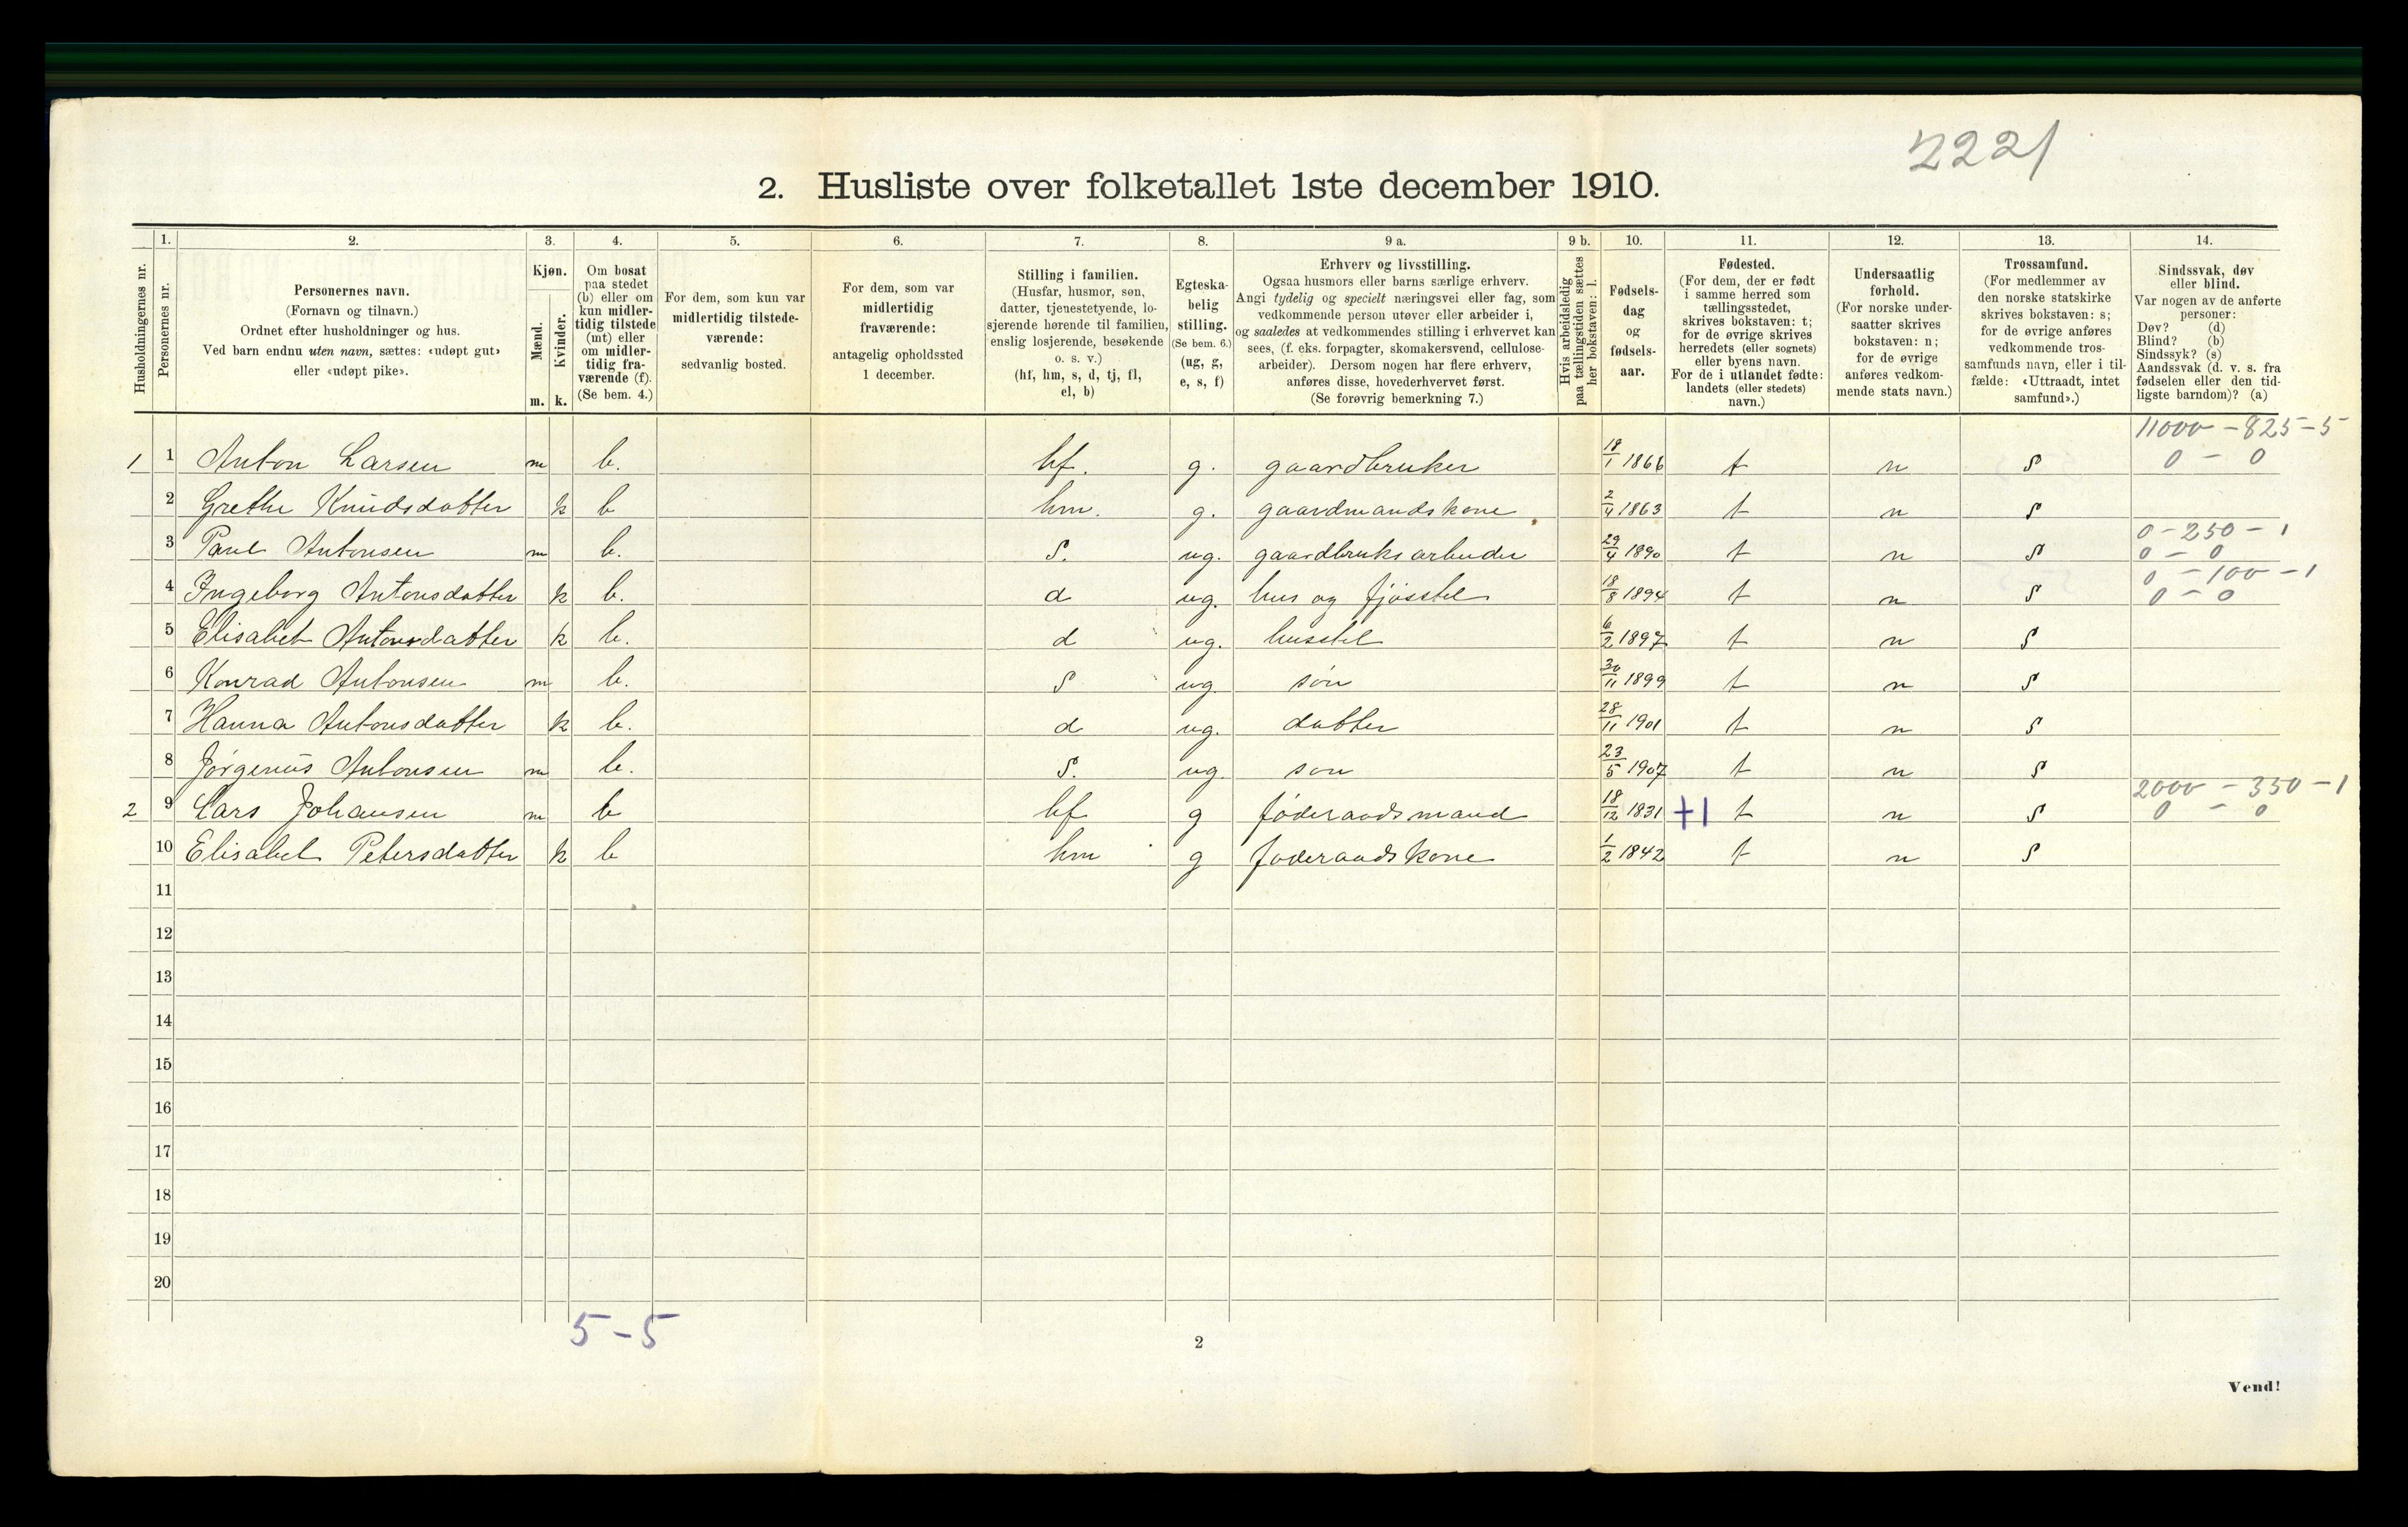 2221
2. Husliste over folketallet 1ste december 1910.
Husholdningernes nr.
1.
Personernes nr.
2.
Personernes navn.
(Fornavn og tilnavn.)
Ordnet efter husholdninger og hus.
Ved barn endnu uten navn, sættes: «udøpt gut»
eller «udøpt pike».
3.
Kjøn.
Mænd.
Kvinder.
m. k.
4.
Om bosat
paa stedet
(b) eller om
kun midler-
tidig tilstede
(mt) eller
om midler-
tidig fra-
værende (f).
(Se bem. 4.)
5.
For dem, som kun var
midlertidig tilstede-
værende:
sedvanlig bosted.
6.
For dem, som var
midlertidig
fraværende:
antagelig opholdssted
1 december.
7.
Stilling i familien.
(Husfar, husmor, søn,
datter, tjenestetyende, lo-
sjerende hørende til familien,
enslig losjerende, besøkende
o. s. v.)
(hf, hm, s, d, tj, fl,
el, b)
8.
Egteska-
belig
stilling.
(Se bem. 6.)
(ug, g,
e, s, f)
9 a.
Erhverv og livsstilling.
Ogsaa husmors eller barns særlige erhverv.
Angi tydelig og specielt næringsvei eller fag, som
vedkommende person utøver eller arbeider i,
og saaledes at vedkommendes stilling i erhvervet kan
sees, (f. eks. forpagter, skomakersvend, cellulose-
arbeider). Dersom nogen har flere erhverv,
anføres disse, hovederhvervet først.
(Se forøvrig bemerkning 7.)
9 b.
Hvis arbeidsledig
paa tællingstiden sættes
her bokstaven: l.
10.
Fødsels-
dag
og
fødsels-
aar.
11.
Fødested.
(For dem, der er født
i samme herred som
tællingsstedet,
skrives bokstaven: t;
for de øvrige skrives
herredets (eller sognets)
eller byens navn.
For de i utlandet fødte:
landets (eller stedets)
navn.)
12.
Undersaatlig
forhold.
(For norske under-
saatter skrives
bokstaven: n;
for de øvrige
anføres vedkom-
mende stats navn.)
13.
Trossamfund.
(For medlemmer av
den norske statskirke
skrives bokstaven: s;
for de øvrige anføres
vedkommende tros-
samfunds navn, eller i til-
fælde: «Uttraadt, intet
samfund».)
14.
Sindssvak, døv
eller blind.
Var nogen av de anførte
personer:
Døv? (d)
Blind? (b)
Sindssyk? (s)
Aandssvak (d. v. s. fra
fødselen eller den tid-
ligste barndom)? (a)
11000 - 825 - 5
1 1 Anton Larsen m b. hf. g. gaardbruker 18/1 1866 t n s 0 - 0
2 Grethe Knudsdatter k b hm. g. gaardmandskone 2/4 1863 t n s
0 - 250 - 1
3 Paul Antonsen m b. s. ug. gaardbruksarbeider 29/4 1890 t n s 0 - 0
0 - 100 - 1
4 Ingeborg Antonsdatter k b. d ug. hus og fjøsstel 18/8 1894 t n s 0 - 0
5 Elisabet Antonsdatter k b. d ug. husstel 6/2 1897 t n s
6 Konrad Antonsen m b. s ug søn 30/11 1899 t n s
7 Hanna Antonsdatter k b. d ug. datter 28/11 1901 t n s
8 Jørgenius Antonsen m b. s. ug. søn 23/5 1907 t n s
2000 - 350 - 1
2 9 Lars Johansen m b hf g føderaadsmand 18/12 1831 +1 t n s 0 - 0
10 Elisabet Petersdatter k b hm g føderaadskone 1/2 1842 t n s
11
12
13
14
15
16
17
18
19
20
5 - 5
2
Vend!